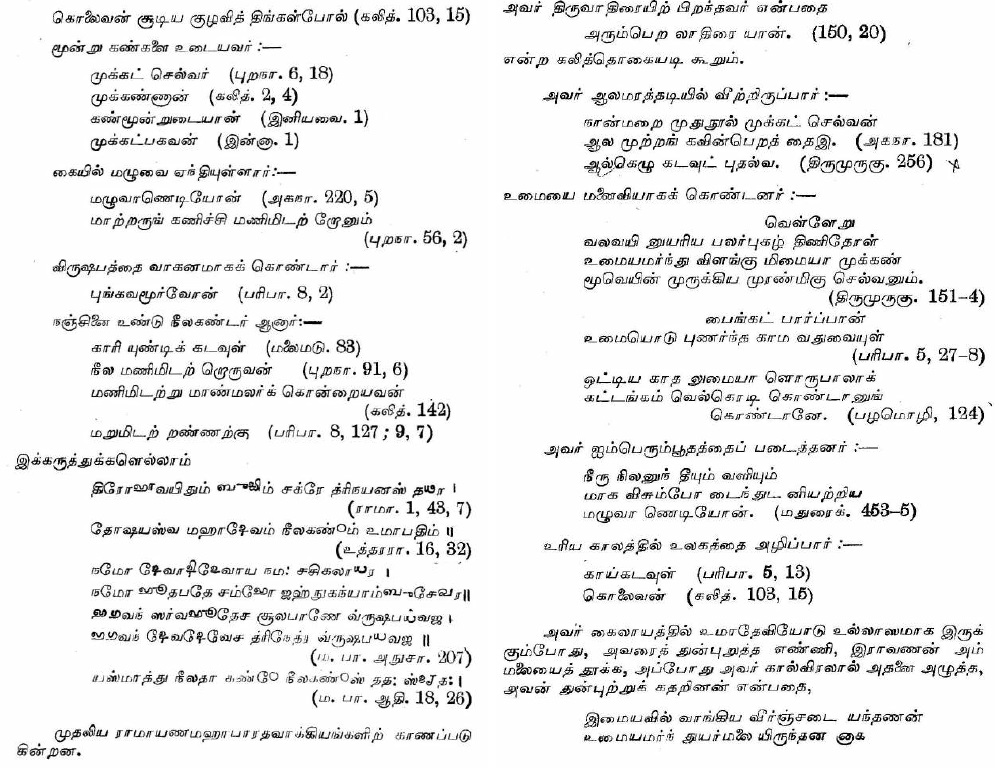 கொலைவன் சூடிய குழவித் திங்கள்போல் (கலித். 103, 15)
மூன்று கண்களை உடையவர் :—
முக்கட் செல்வர் (புறநா. 6, 18)
முக்கண்ணான் (கலித். 2, 4)
கண்மூன்றுடையான் (இனியவை. 1)
முக்கட்பகவன் (இன்னா. 1)
கையில் மழுவை ஏந்தியுள்ளார்:—
மழுவாணெடியோன் (அகநா. 220, 5)
மாற்றருங் கணிச்சி மணிமிடற் றோனும்
(புறநா. 56, 2)
விருஷபத்தை வாகனமாகக் கொண்டார் :—
புங்கவமூர்வோன் (பரிபா. 8, 2)
நஞ்சினை உண்டு நீலகண்டர் ஆனார்:—
காரி யுண்டிக் கடவுள் (மலைமடு. 83)
நீல மணிமிடற் றொருவன் (புறநா. 91, 6)
மணிமிடற்று மாண்மலர்க் கொன்றையவன்
(கலித். 142)
மறுமிடற் றண்ணற்கு (பரிபா. 8, 127 ; 9, 7)
இக்கருத்துக்களெல்லாம்
சக்ரே த்ரிநயனஸ்
(ராமா. 1, 43, 7)
தோஷயஸ்வ நீலகண்ஂ உமாபதிம் ॥
(உத்தரரா. 16, 32)
நமோ நம: ।
நமோ
சூலபாணே ।
॥
(ம. பா. அநுசா. 207)
யஸ்மாத்து நீலதா தத: ।
(ம. பா. ஆதி. 18, 26)
முதலிய ராமாயணமஹாபாரதவாக்கியங்களிற் காணப்படு
கின்றன.
அவர் திருவாதிரையிற் பிறந்தவர் என்பதை
அரும்பெற லாதிரை யான். (150, 20)
என்ற கலித்தொகையடி கூறும்.
அவர் ஆலமரத்தடியில் வீற்றிருப்பார் :—
நான்மறை முதுநூல் முக்கட் செல்வன்
ஆல முற்றங் கவின்பெறத் தைஇ. (அகநா. 181)
ஆல்கெழு கடவுட் புதல்வ. (திருமுருகு. 256)
உமையை மனைவியாகக் கொண்டனர் :—
வெள்ளேறு
வலவயி னுயரிய பலர்புகழ் திணிதோள்
உமையமர்ந்து விளங்கு மிமையா முக்கண்
மூவெயின் முருக்கிய முரண்மிகு செல்வனும்.
(திருமுருகு. 151-4)
பைங்கட் பார்ப்பான்
உமையொடு புணர்ந்த காம வதுவையுள்
(பரிபா. 5, 27-8)
ஒட்டிய காத லுமையா ளொருபாலாக்
கட்டங்கம் வெல்கொடி கொண்டானுங்
கொண்டானே. (பழமொழி, 124)
அவர் ஐம்பெரும்பூதத்தைப் படைத்தனர் :—
நீரு நிலனுந் தீயும் வளியும்
மாக விசும்போ டைந்துட னியற்றிய
மழுவா ணெடியோன். (மதுரைக். 453-5)
உரிய காலத்தில் உலகத்தை அழிப்பார் :—
காய்கடவுள் (பரிபா. 5, 13)
கொலைவன் (கலித். 103, 15)
அவர் கைலாயத்தில் உமாதேவியோடு உல்லாஸமாக இருக்
கும்போது, அவரைத் துன்புறுத்த எண்ணி, இராவணன் அம்
மலையைத் தூக்க, அப்போது அவர் கால்விரலால் அதனை அழுத்த,
அவன் துன்புற்றுக் கதறினன் என்பதை,
இமையவில் வாங்கிய வீர்ஞ்சடை யந்தணன்
உமையமர்ந் துயர்மலை யிருந்தன னாக